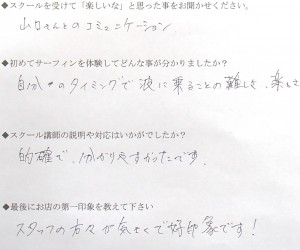 ◆スクールを受けて「楽しいな」と思った事をお聞かせください。
山口さんとのコミュニケーション
◆初めてサーフィンを体験してどんな事が分かりましたか？
自分のタイミングで波に乗ることの難しさ、楽しさ
◆スクール講師の説明や対応はいかがでしたか？
的確で、分かりやすかったです。
◆最後にお店の第一印象を教えて下さい
スタッフの方々が気さくで好印象です！